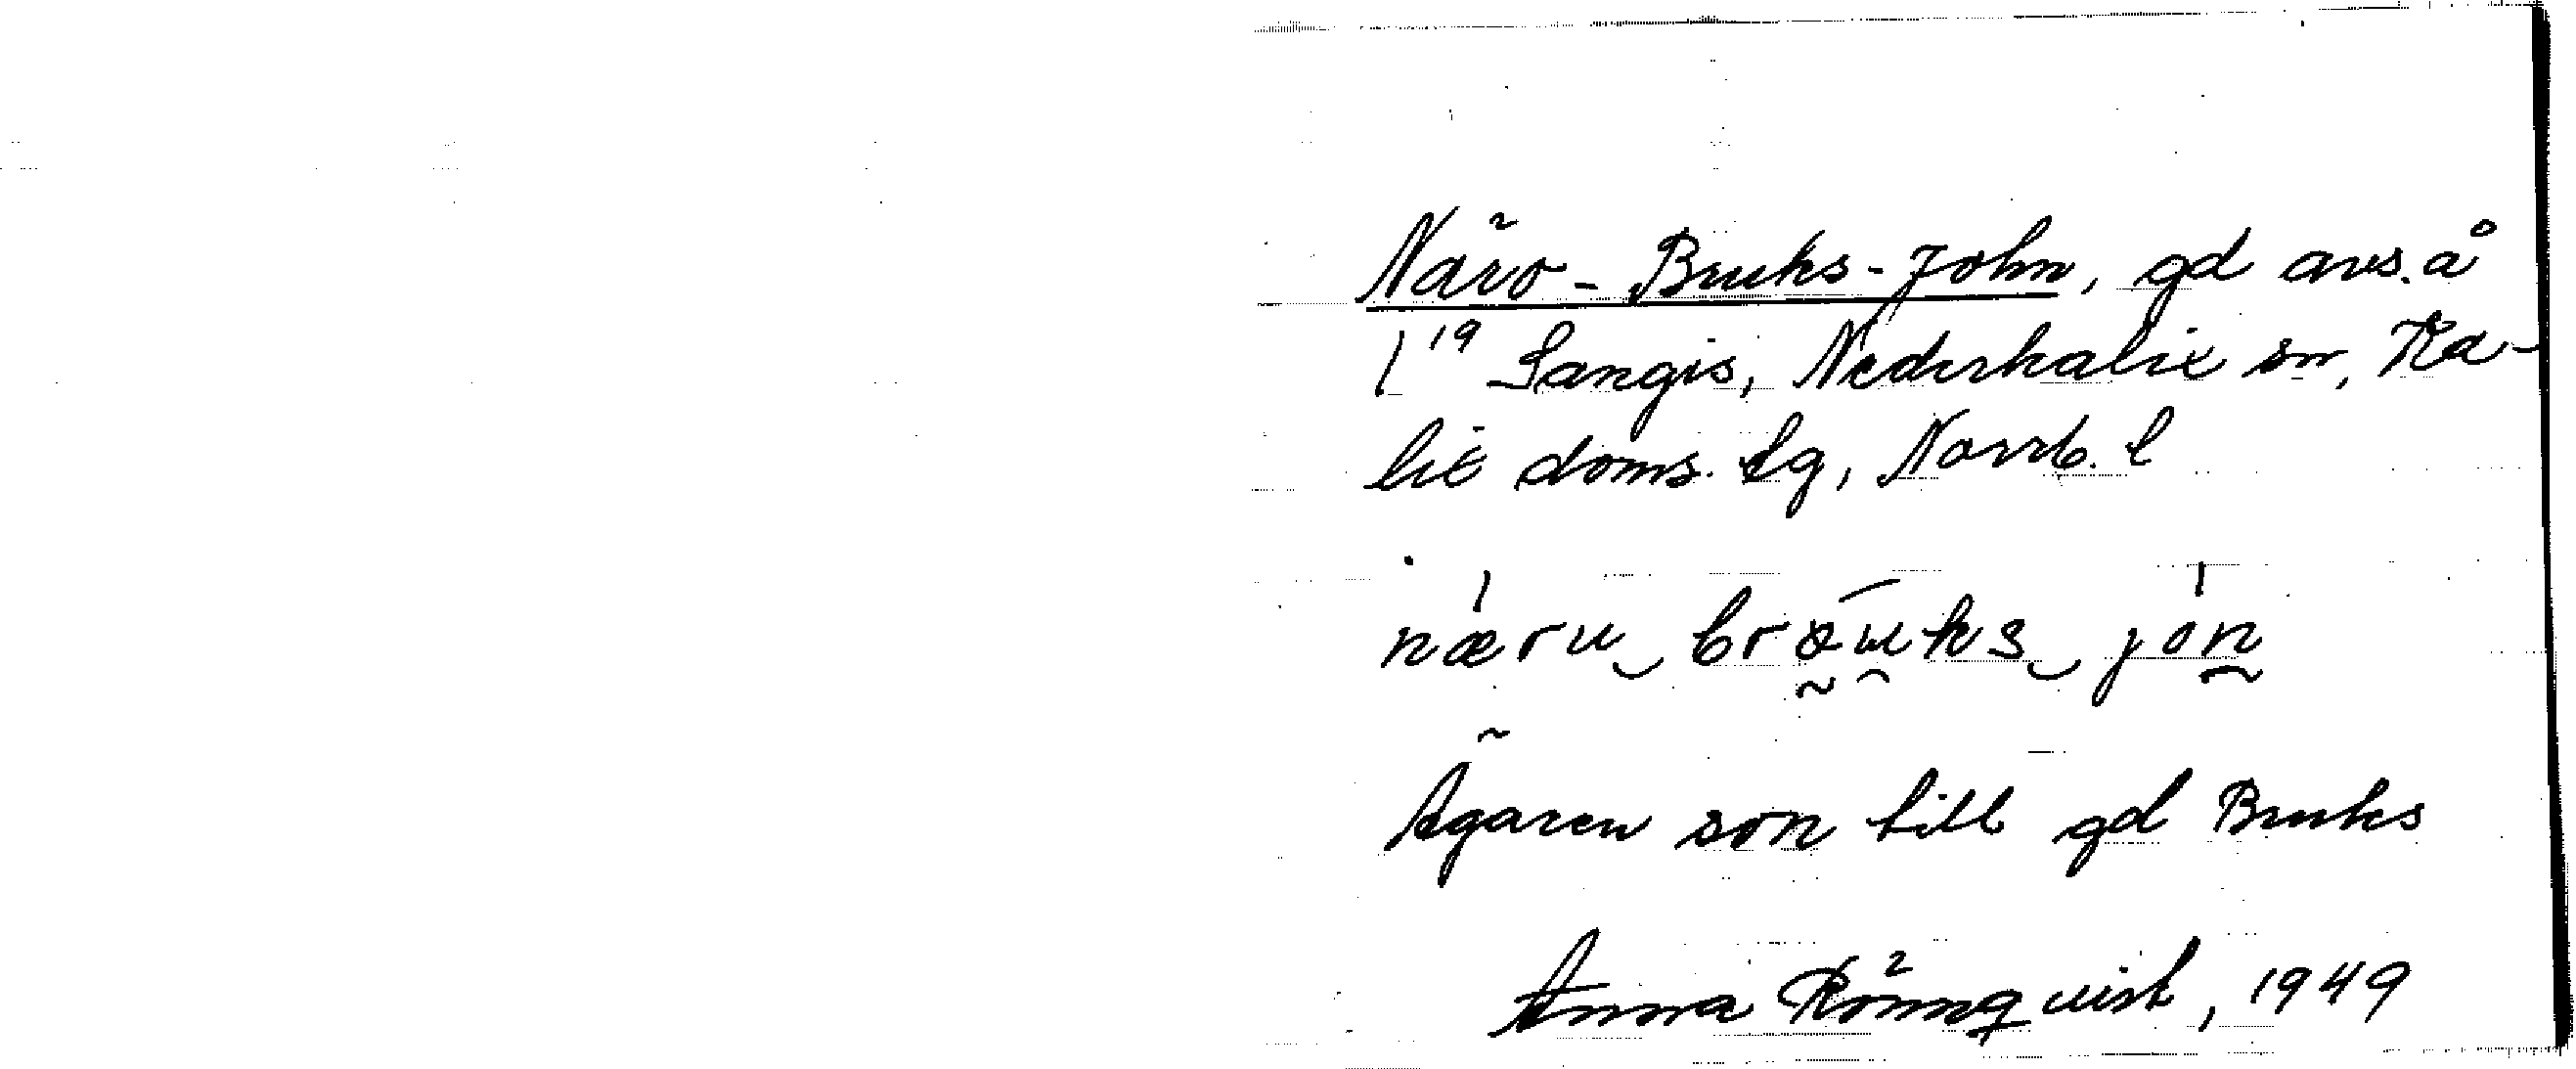 Närv-Bruks-John, gd avs. å
l 19 Sangis, Nederkalix sn, Ka-
lix doms. lg, Norrb. l
næru bröuks jon
Ägaren son till gd Bruks
Anna Rönnqvist, 1949